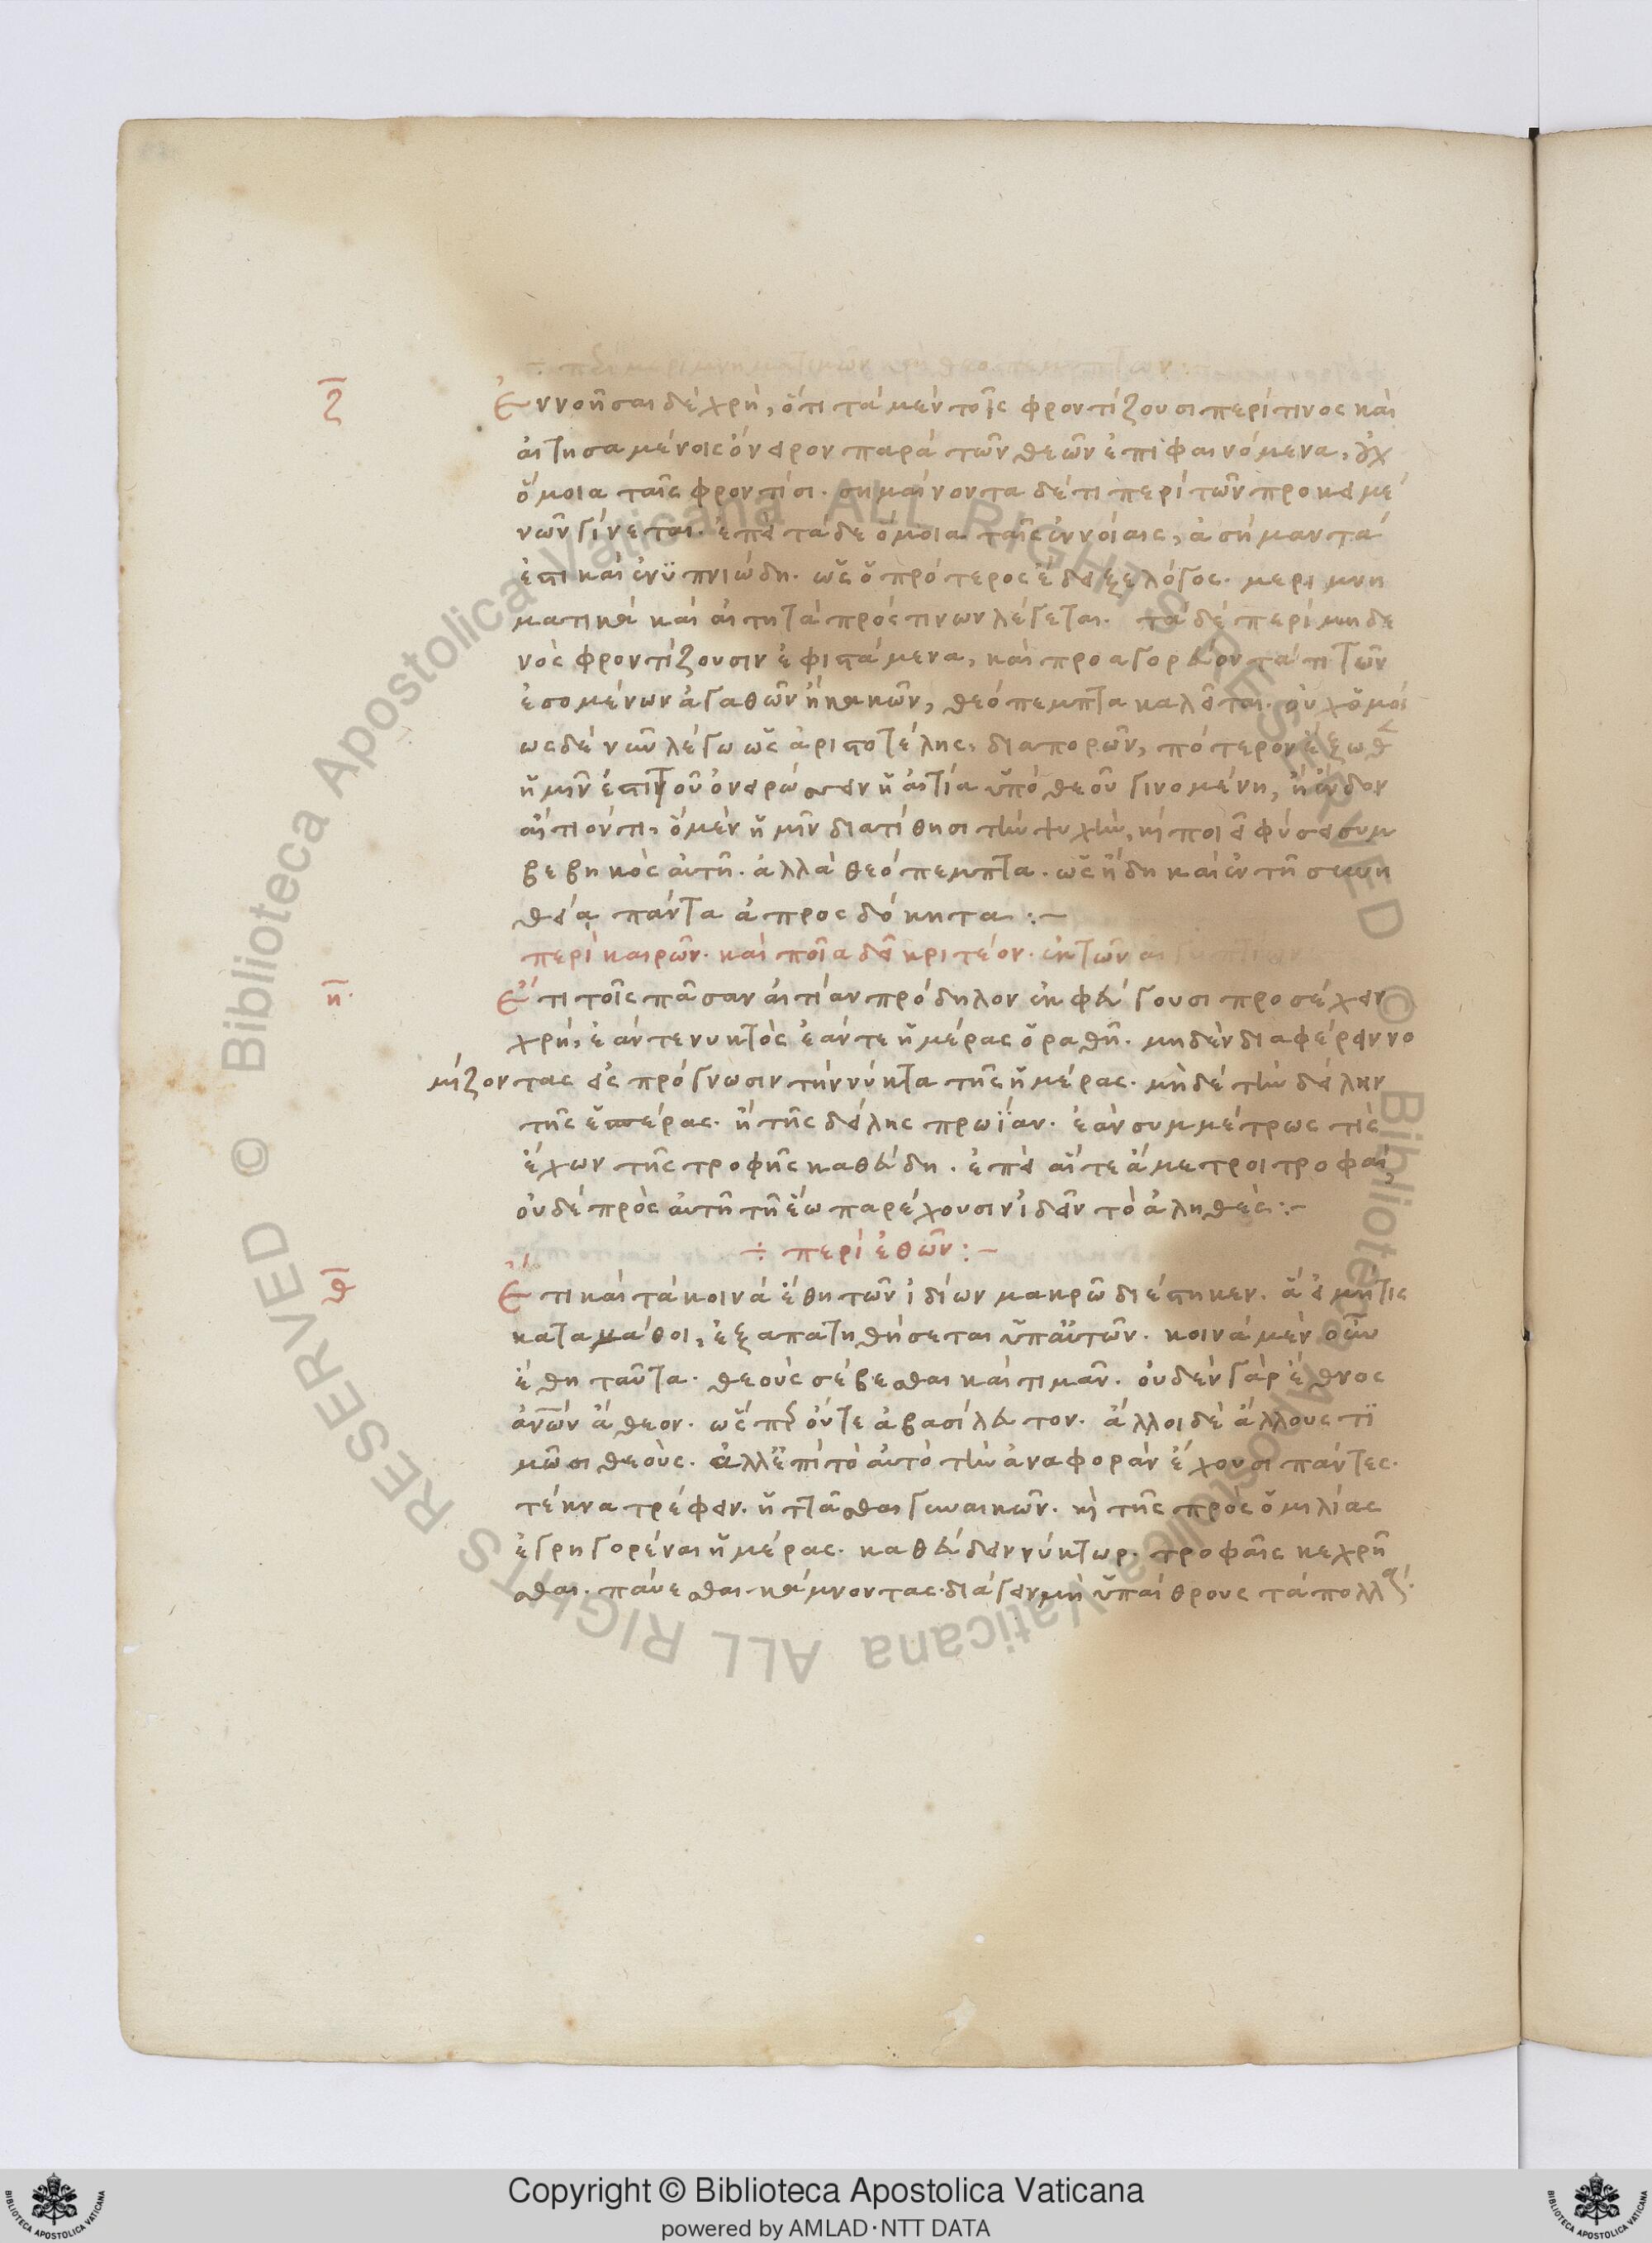 ÷ περὶ μεριμνηματικῶν καὶ θεοπέμπτων :
ζ Ἐννοῆσαι δὲ χρὴ, ὅτι τὰ μὲν τοῖς φροντίζουσι περί τινος καὶ
αἰτησαμένοις ὄνειρον παρὰ τῶν θεῶν ἐπιφαινόμενα, οὐχ
ὅμοια ταῖς φροντίσι. σημαίνοντα δέ τι περὶ τῶν προκειμέ
νων γίνεται. ἐπεὶ τάδε ὅμοια ταῖς ἐννοίαις, ἀσήμαντά
ἐστι καὶ ἐνϋπνιώδη. ὡς ὁ πρότερος ἔδειξε λόγος. μεριμνη
ματικὰ καὶ αἰτητὰ πρός τινων λέγεται. τὰ δὲ περὶ μηδε
νὸς φροντίζουσιν ἐφιστάμενα, καὶ προαγορεύοντά τι τῶν
ἐσομένων ἀγαθῶν ἢ κακῶν, θεόπεμπτα καλεῖται. οὐχ ὁμοί
ως δὲ νῦν λέγω ὡς ἀριστοτέλης, διαπορῶν, πότερον ἔξωθ
ἡμῖν ἐστι τοῦ ὀνειρώσσειν ἡ αἰτία ὑπὸ θεοῦ γινομένη, ἢ ἔνδον
αἴτιόν τι, ὃ μὲν ἡμῖν διατίθησι τὴν ψυχὴν, κὶ ποιεῖ φύσει συμ
βεβηκὸς αὐτῇ. ἀλλὰ θεόπεμπτα. ὡς ἤδη καὶ ἐν τῇ συνη
θείᾳ πάντα ἀπροσδόκητα :-
περὶ καιρῶν. καὶ ποῖα δεῖ κριτέον. ἐκ τῶν αἰγυπτίων
η. Ἔτι τοῖς πᾶσαν αἰτίαν πρόδηλον ἐκφεύγουσι προσέχειν
χρὴ, ἐάν τε νυκτὸς ἐάν τε ἡμέρας ὁραθῇ. μηδὲν διαφέρειν νο
μίζοντας εἰς πρόγνωσιν τὴν νύκτα τῆς ἡμέρας. μὴ δὲ τὴν δείλην
τῆς ἑσπέρας. ἢ τῆς δείλης πρωΐαν. ἐὰν συμμέτρως τὶς
ἔχων τῆς τροφῆς καθεύδη. ἐπεὶ αἵ τε ἄμετροι τροφαὶ
οὐδὲ πρὸς αὐτῇ τῇ ἕω παρέχουσιν ἰδεῖν τὸ ἀληθές :-
÷ περὶ ἐθῶν : -
θ Ἔτι καὶ τὰ κοινὰ ἔθη τῶν ἰδίων μακρῶ διέστηκεν. ἃ εἰ μή τις
καταμάθοι, ἐξαπατηθήσεται ὑπ' αὐτῶν. κοινὰ μὲν οὖν
ἔθη ταῦτα. θεοὺς σέβεσθαι καὶ τιμᾶν. οὐδὲν γὰρ ἔθνος
ἀνῶν ἄθεον. ὥσπερ οὔτε ἀβασίλευτον. ἄλλοι δὲ ἄλλους τϊ
μῶσι θεοὺς. ἀλλ' ἐπὶ τὸ αὐτὸ τὴν ἀναφορὰν ἔχουσι πάντες.
τέκνα τρέφειν. ἡττᾶσθαι γυναικῶν. κὶ τῆς πρὸς ὁμιλίας
ἐγρηγορέναι ἡμέρας. καθεύδειν νύκτωρ. τροφαῖς κεχρῆ
σθαι. παύεσθαι κάμνοντας. διάγειν μὴ ὑπαίθρους τὰ πολλά.
© Biblioteca Apostolica Vaticana ALL RIGHTS RESERVED
© Biblioteca Apostolica Vaticana ALL RIGHTS RESERVED
Copyright © Biblioteca Apostolica Vaticana
powered by AMLAD·NTT DATA
BIBLIOTECA APOSTOLICA VATICANA
BIBLIOTECA APOSTOLICA VATICANA